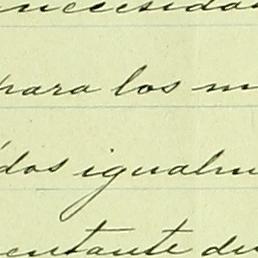 necesida
para los m
dos igualm
entante du